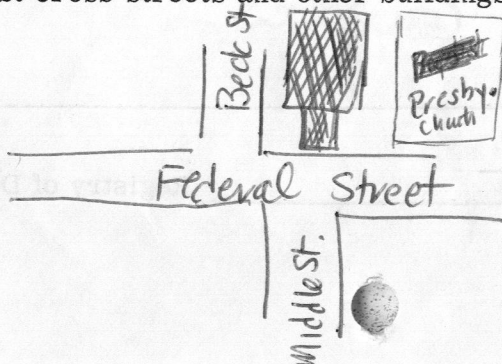 st cross streets and other buildings
Beck St
Presby.
Church
Federal Street
Middle St.
istry of D